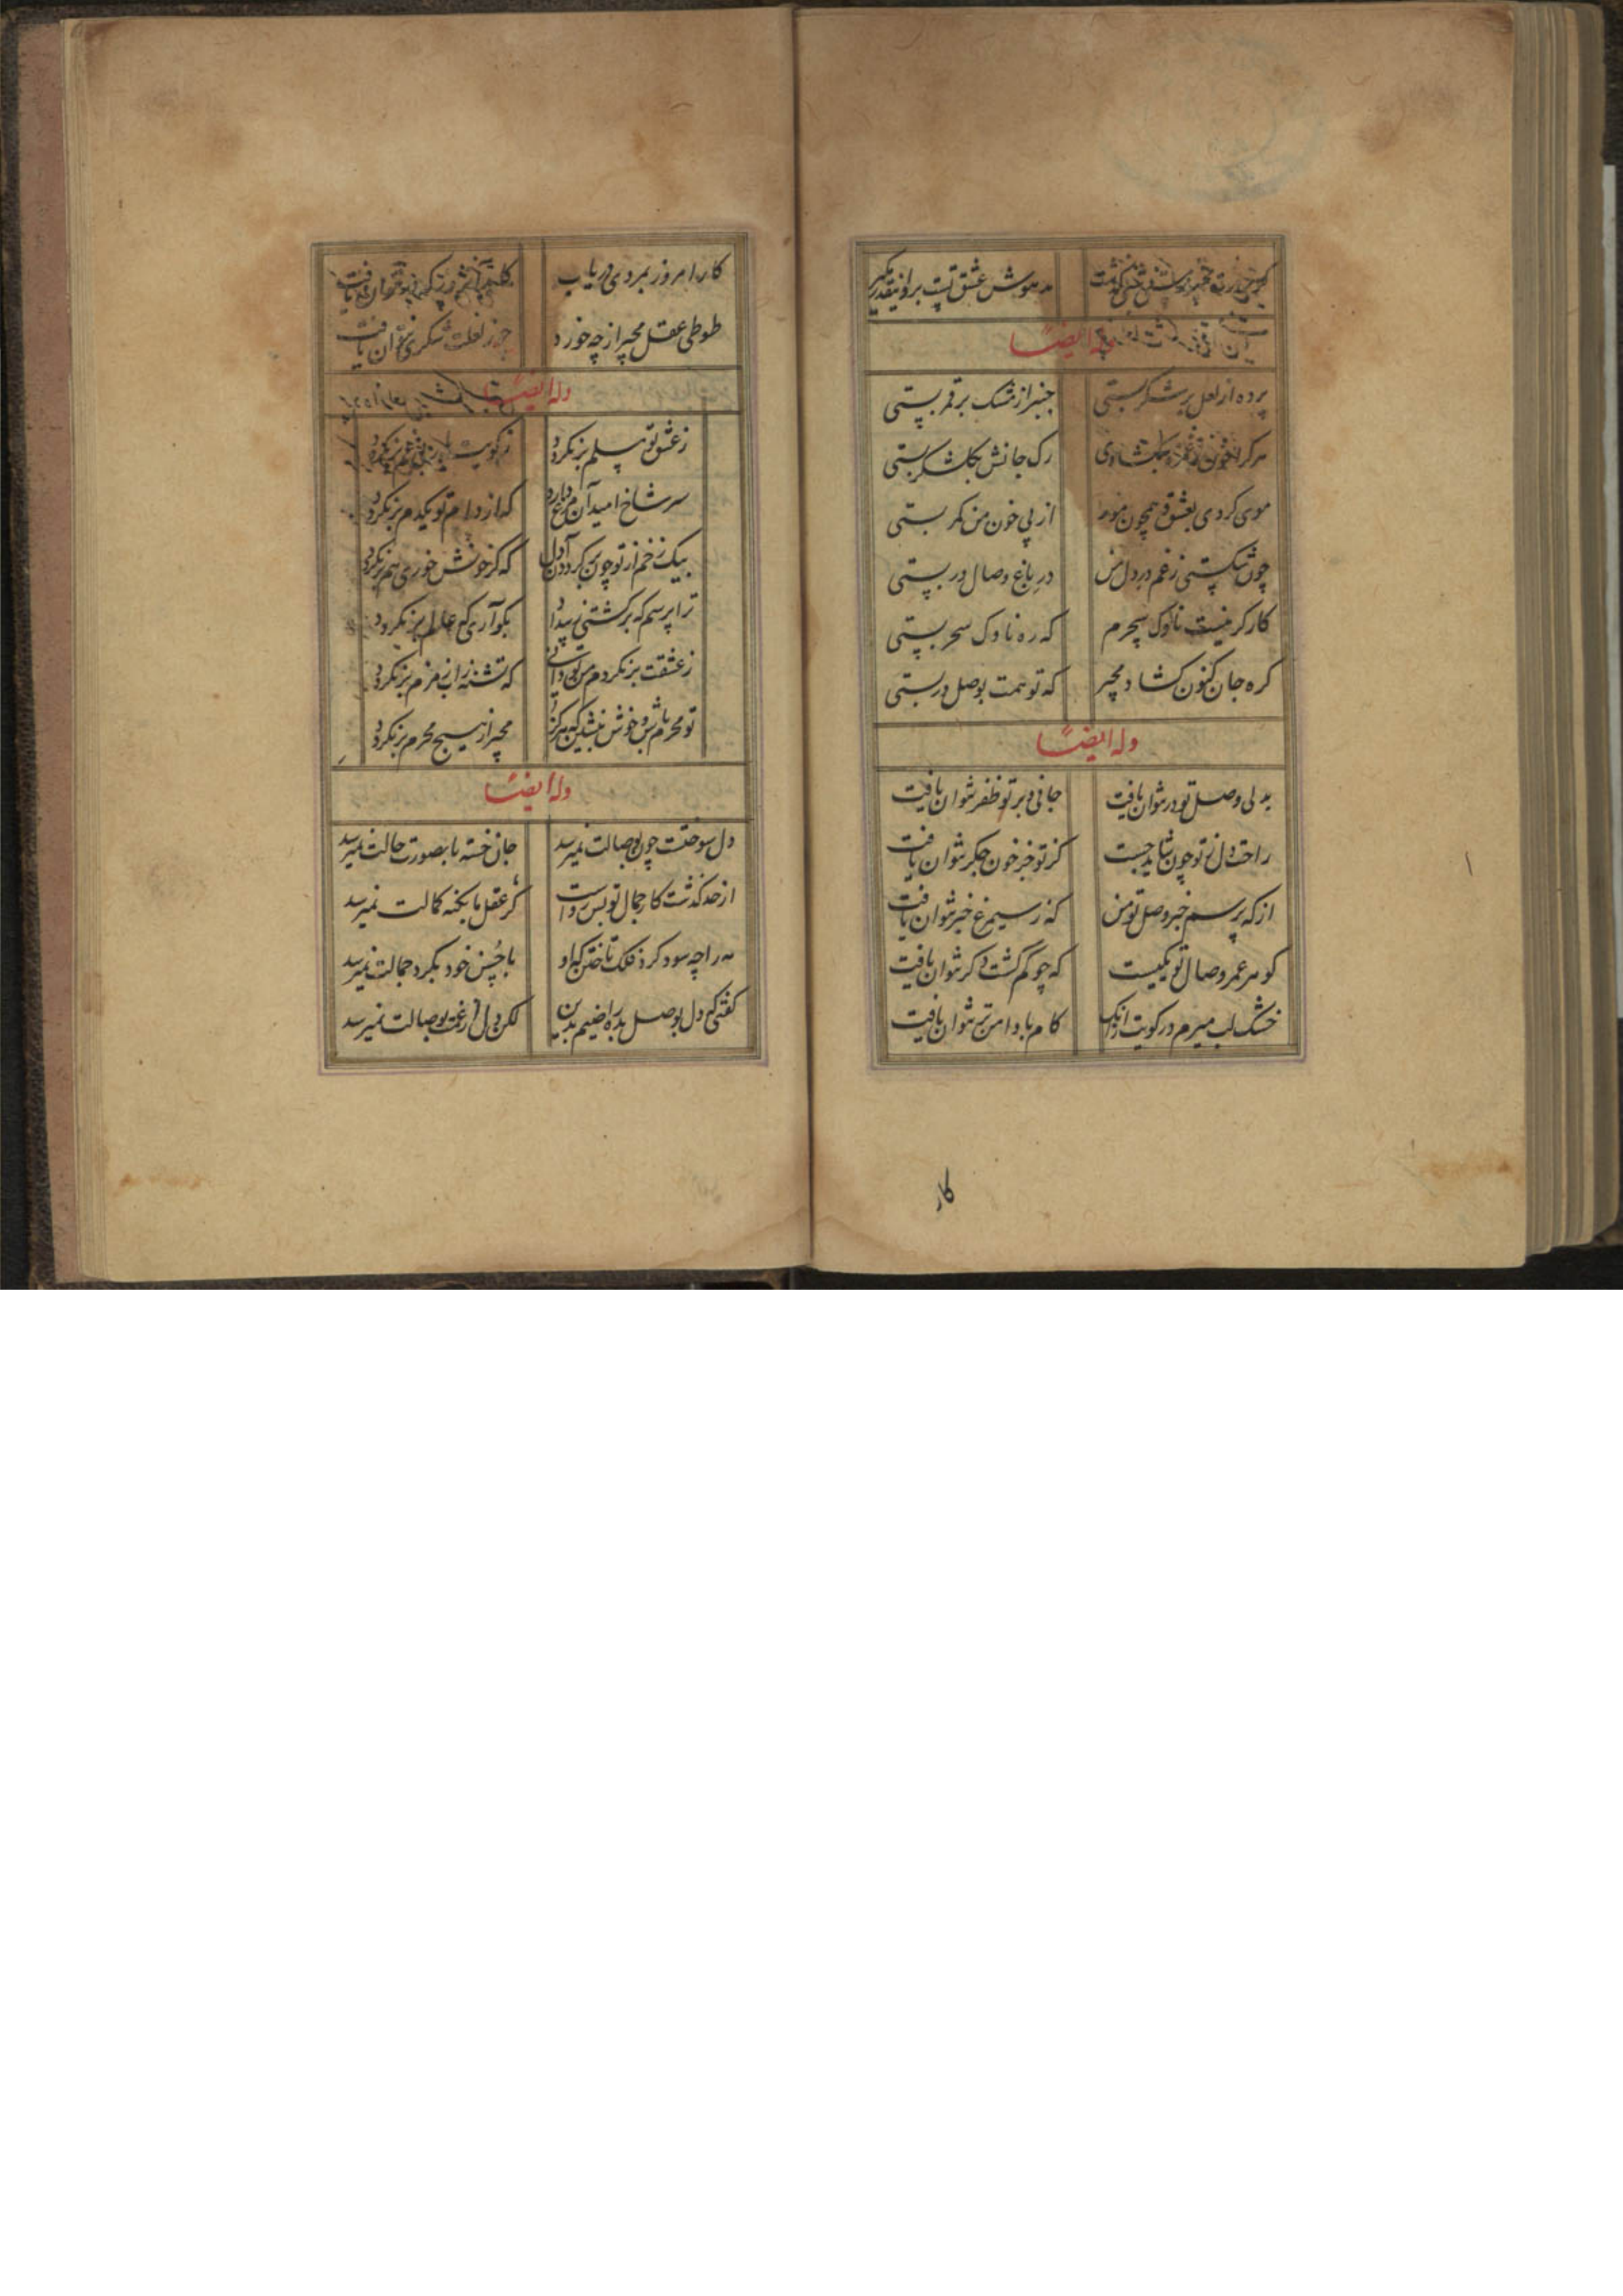 مدهوش عشق تست برو نیقدر مکیر
وله ایضاً
پرده از لعل بر شکر بستی چنبر از مشک بر قمر بستی
هر کرا خون ز غمزه بگشادی رک جانش بکلشکر بستی
موی کردی بعشق همچون مور از پی خون من کمر بستی
چون شکستی ز غم در دل من در باغ وصال در بستی
کارکر نیست ناوک سحرم که ره ناوک سحر بستی
کره جان کنون کشاد مجیر که تو همت بوصل در بستی
وله ایضاً
بدلی وصل تو در نتوان یافت جانی و بر تو ظفر نتوان یافت
راحت دل ز تو چون شاید جست کز تو جز خون جکر نتوان یافت
از که پرسم خبر وصل تو من که ز سیمرغ خبر نتوان یافت
کوهر عمر و وصال تو یکیست که چو کم کشت دکر نتوان یافت
خشک لب میرم در کویت ازانک کام با دامن تر نتوان یافت
کار
کار امروز بمردی دریاب
طوطی عقل مجیر از چه خورد جز ز لعلت شکری نتوان یافت
وله ایضاً
ز عشق تو دلم بر نکردد ز کویت
سر شاخ امید آن مرغ دارد که از دام تو یکدم بر نکردد
بیک زخم از تو چون بر کردد آن دل که کر خونش خوری هم بر نکردد
ترا پرسم که بر کشتی ز بیداد بکو آری که عالم بر نکردد
ز عشقت بر نکردم من تو دانی که تشنه ز آب زمزم بر نکردد
تو محرم باش و خوش بنشین که هرکز مجیر از هیچ محرم بر نکردد
وله ایضاً
دل سوخت چون بوصالت نمیرسد جان خسته با بصورت حالت نمیرسد
از حد کذشت کار جمال تو بس رواست کر عقل ما بکنه کمالت نمیرسد
مه را چه سود کرد فلک تاختن که او با حسن خود بکرد جمالت نمیرسد
کفتی که دل بوصل بده راضیم بدین لکن دل از غمت بوصالت نمیرسد